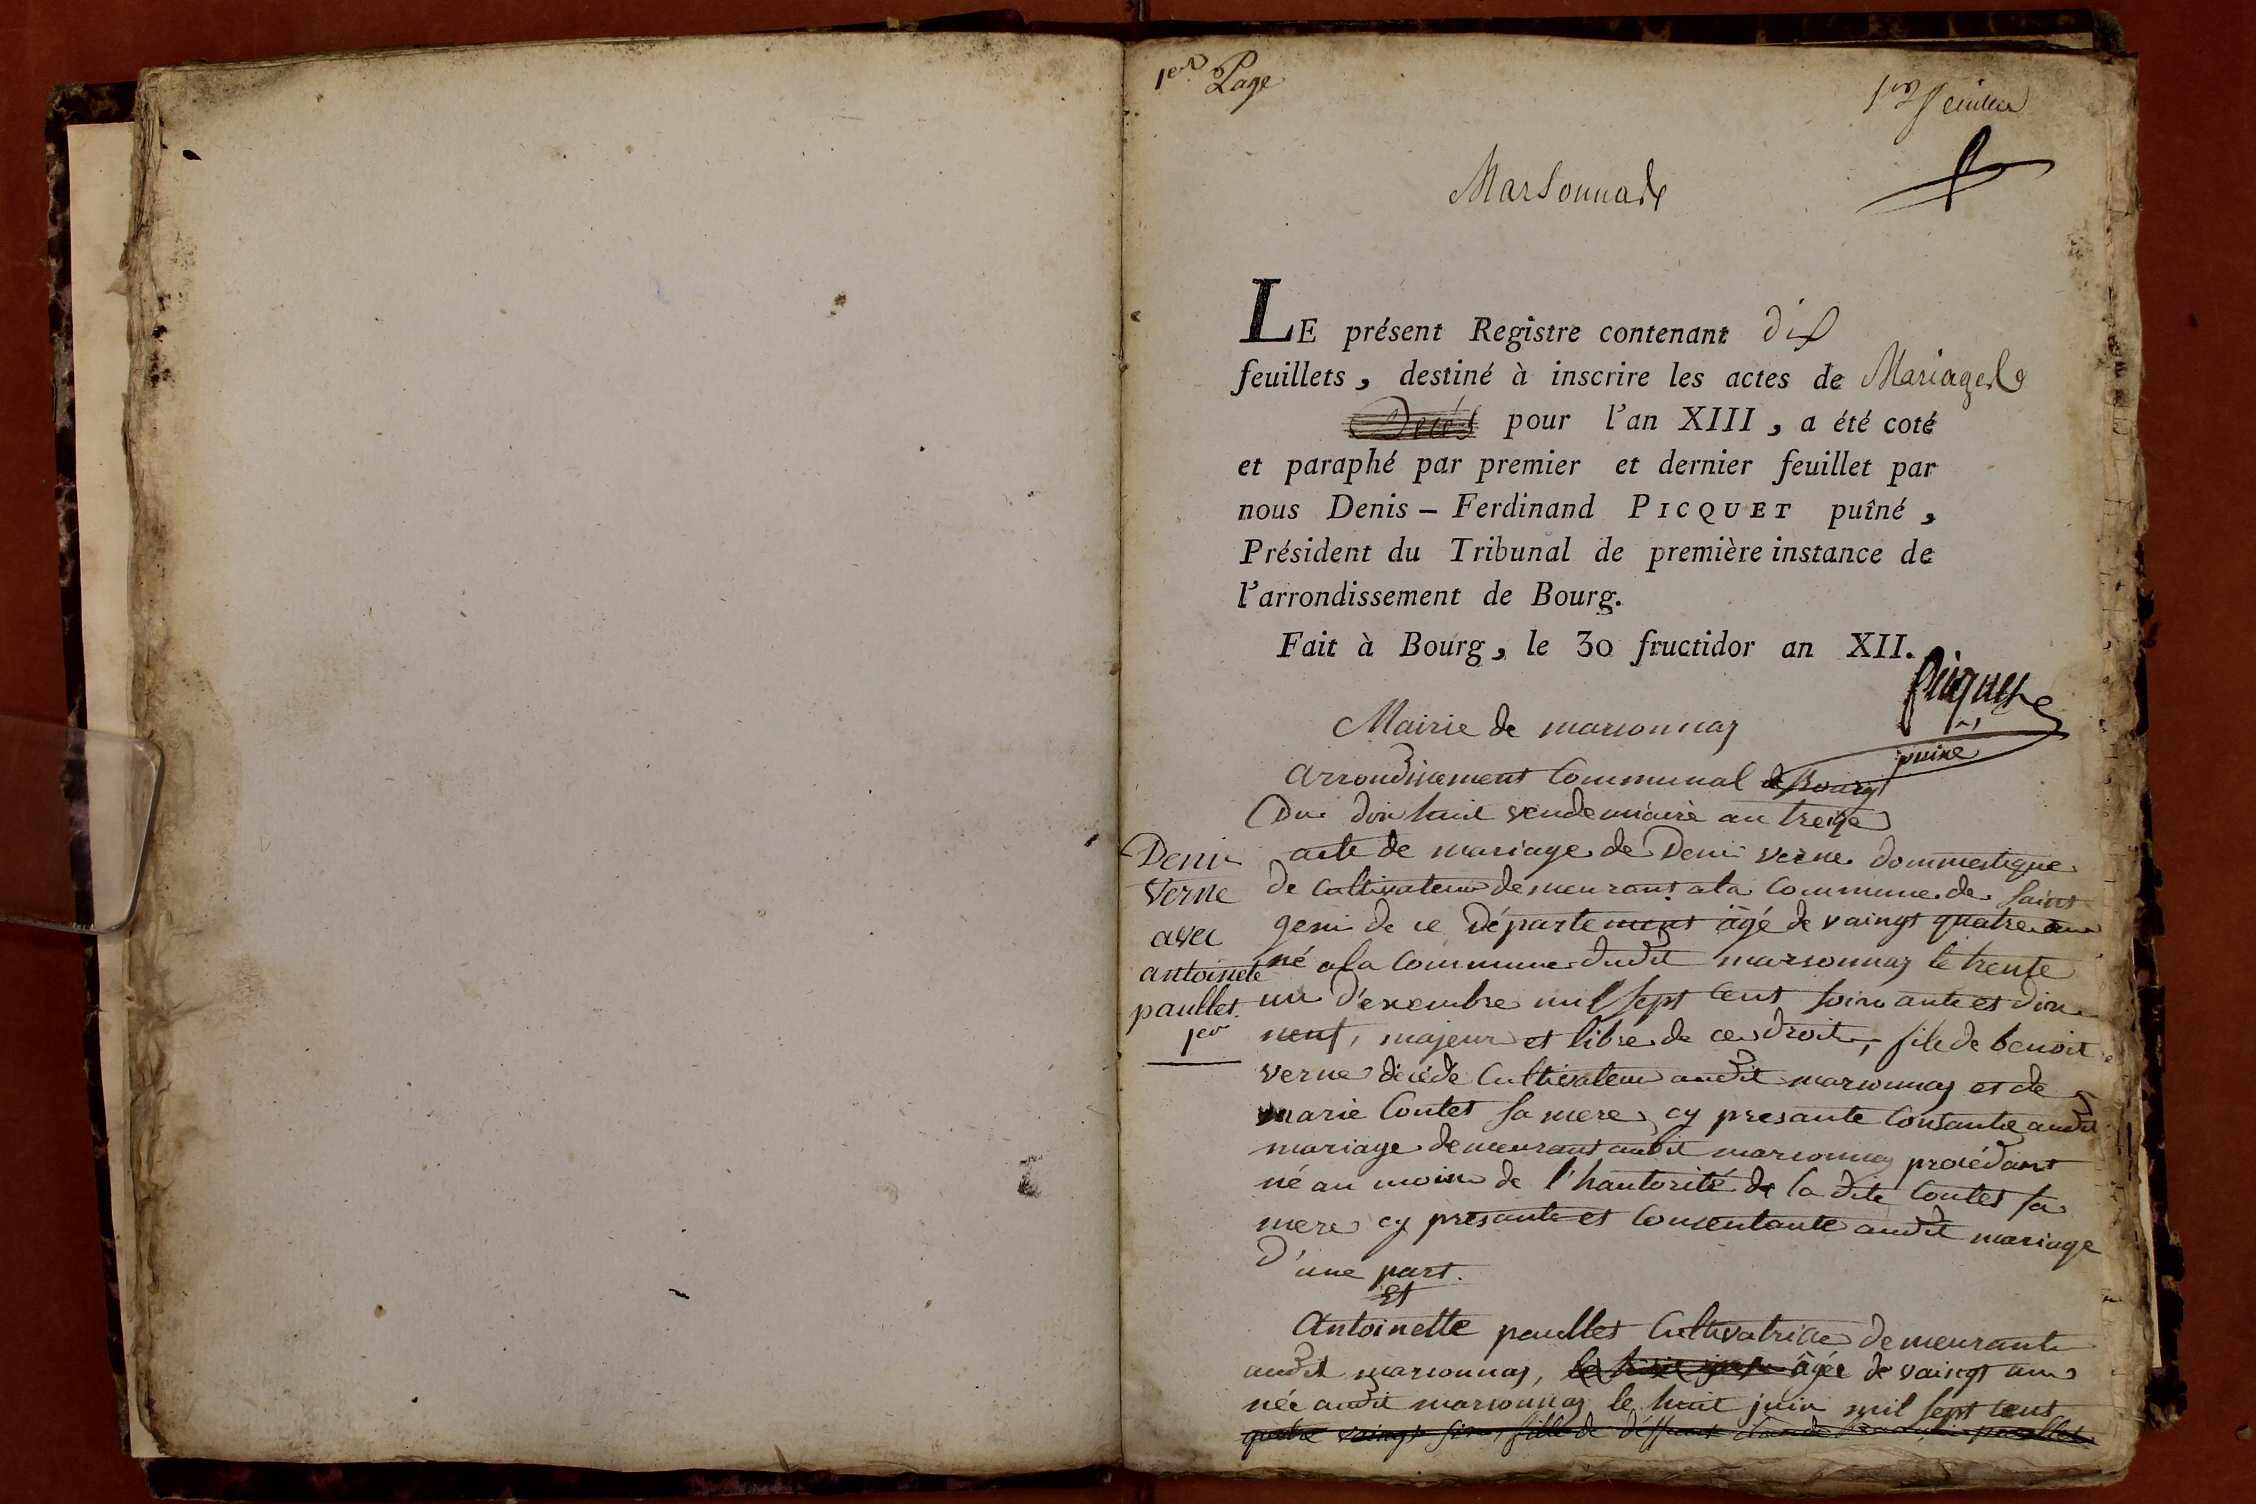 1ere Page
1er feuillet
Marsonnas
LE présent Registre contenant dix
feuillets, destiné à inscrire les actes de Mariages
Décès pour l'an XIII, a été coté
et paraphé par premier et dernier feuillet par
nous Denis - Ferdinand PICQUET puîné,
Président du Tribunal de première instance de
l'arrondissement de Bourg.
Fait à Bourg, le 30 fructidor an XII.
Picquet
puiné
Mairie de marsonnas
arrondissement Communal de Bourg
Du dix huit vendemiaire an treize
Denis
Verne
avec
antoinete
paullet.
1er
acte de mariage de Denis verne dommestique
de Cultivateur demeurant a la Commune de saint
genis de ce Département âgé de vaingt quatre ans
né a la Commune dudit marsonnas le trente
un décembre mil sept cent soixante et dix
neuf, majeur et libre de ces droits, fils de benoit
verne décédé Cultivateur audit marsonnas et de
marie Contet sa mere cy presante Consante audit
mariage demeurant audit marsonnas procédant
né au moins de l'hautorité de la dite Contet sa
mere cy presante et Consentante audit mariage
D'une part.
Et
Antoinette paullet Cultivatrice demeurante
audit marsonnas, âgée de vaingt ans
née audit marsonnas le huit juin mil sept cent
quatre vaingt fille de déffunt Claude paullet